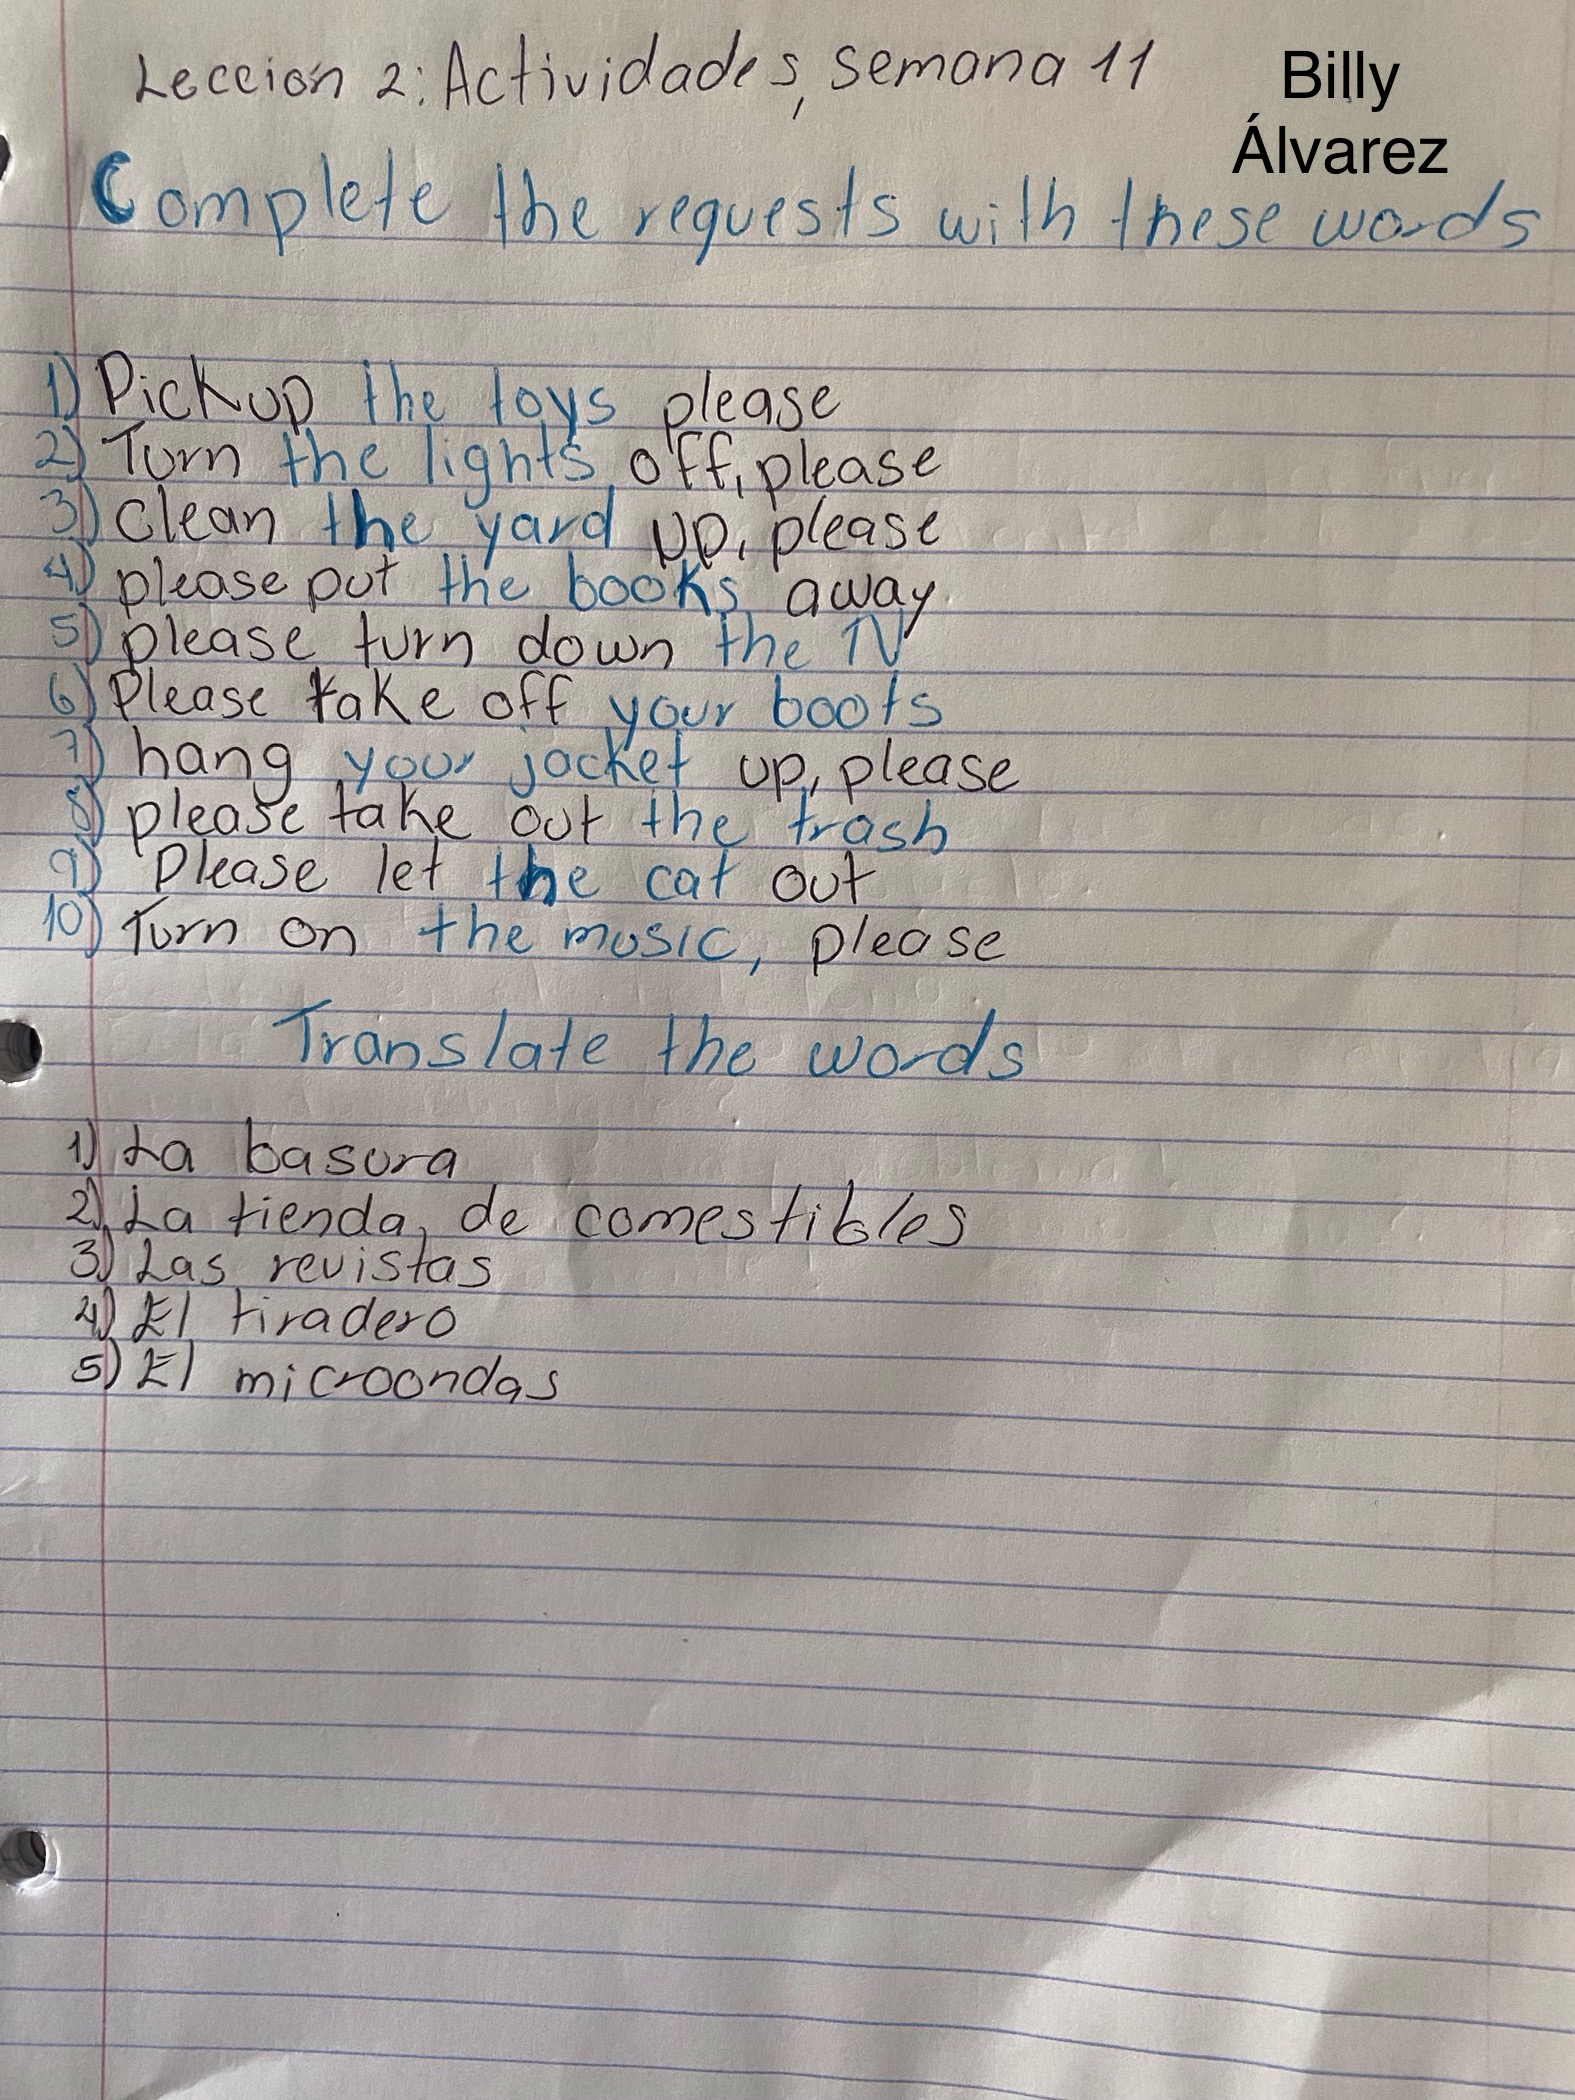 Lección 2: Actividades, semana 11
Billy
Álvarez
Complete the requests with these words
1) Pick up the toys please
2) Turn the lights off, please
3) Clean the yard up, please
4) please put the books away.
5) please turn down the TV
6) Please take off your boots
7) hang your jacket up, please
8) please take out the trash
9) Please let the cat out
10) Turn on the music, please
Translate the words
1) La basura
2) La tienda de comestibles
3) Las revistas
4) El tiradero
5) El microondas